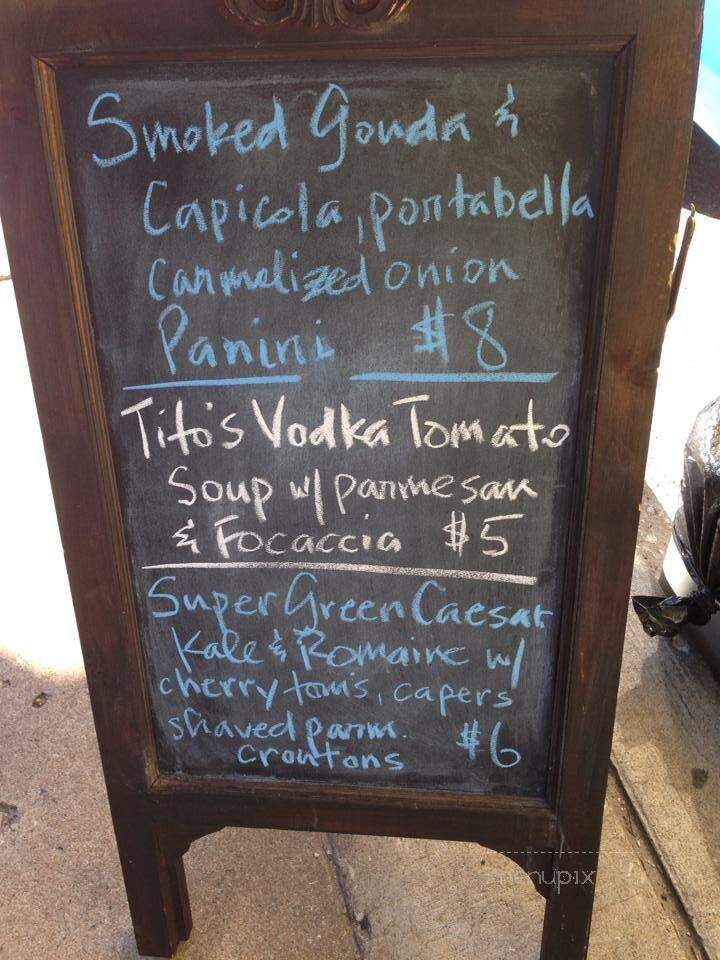 Smoked Gouda &
Capicola, portabella
carmelized onion
Panini $8
Tito's Vodka Tomato
Soup w/ parmesan
& Focaccia $5
Super Green Caesar
Kale & Romaine w/
cherry tom's, capers
shaved parm. $6
croutons
menupix